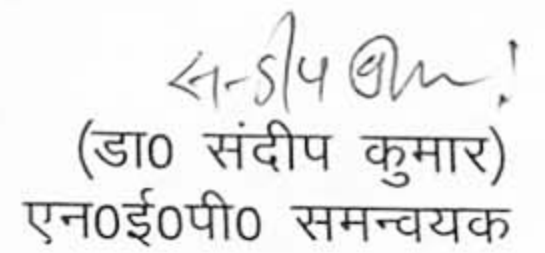 (डा0 संदीप कुमार)
एन0ई0पी0 समन्वयक